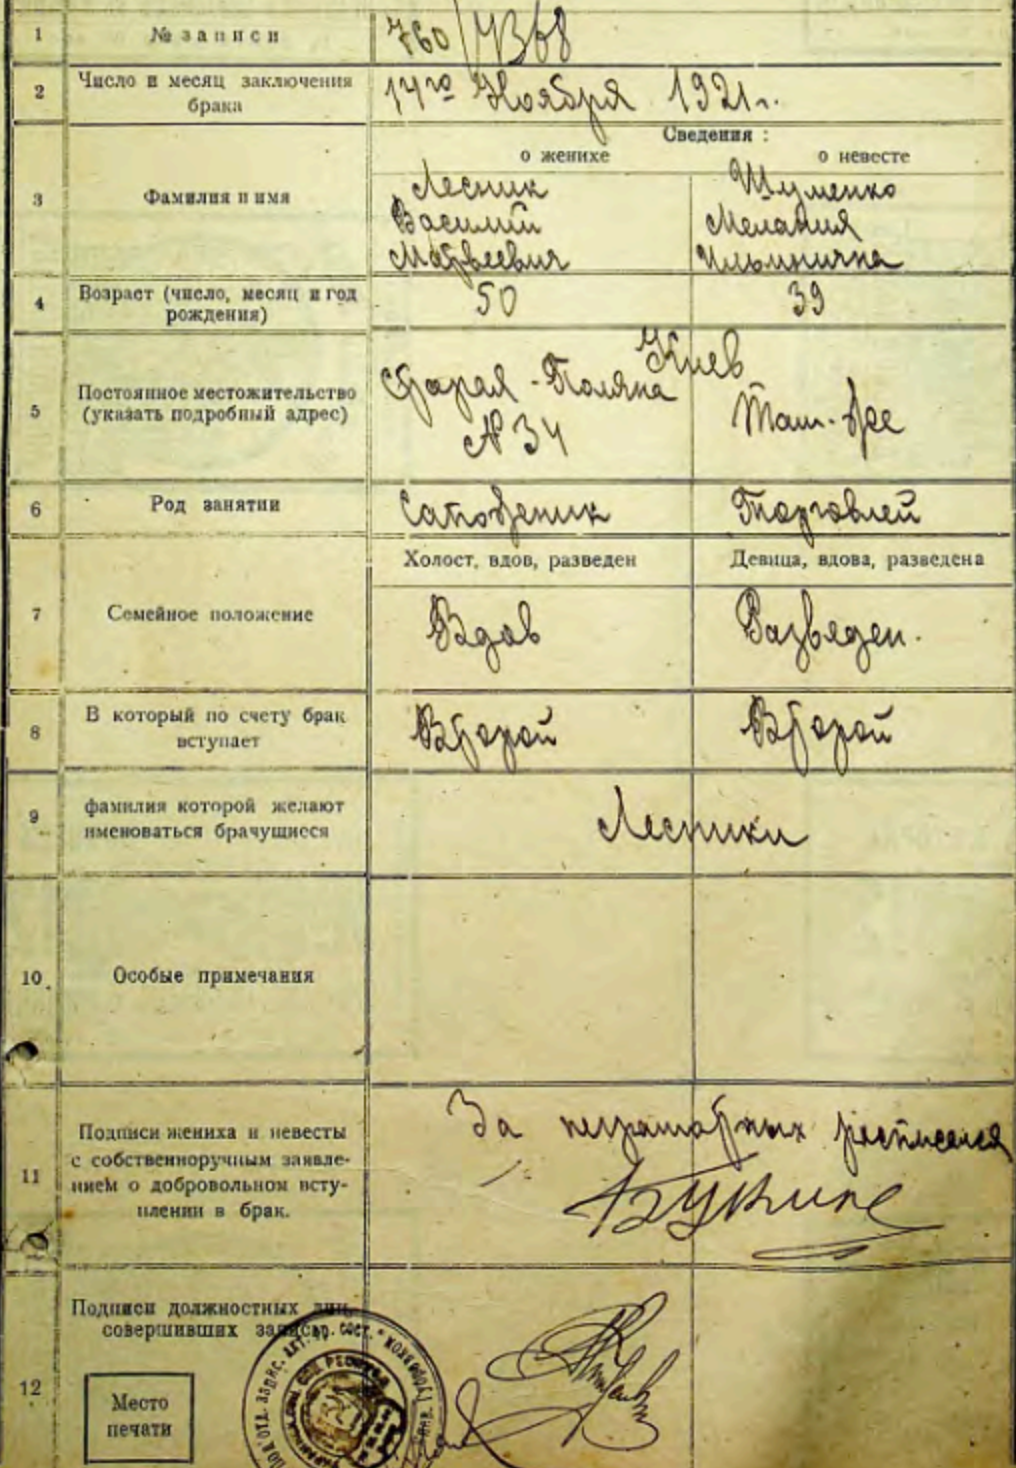 1 № записи 760/4368
2 Число и месяц заключения брака 14го Ноября 1921г.
Сведения :
о женихе о невесте
3 Фамилия и имя
Лесник Шуменко
Василий Мелания
Матвеевич Ильинична
4 Возраст (число, месяц и год рождения) 50 39
Киев
5 Постоянное местожительство (указать подробный адрес)
Старая-Поляна
№ 34 Там-же
6 Род занятии Сапожник Торговлей
Холост, вдов, разведен Девица, вдова, разведена
7 Семейное положение Вдов Разведен.
8 В который по счету брак вступает Второй Второй
9 фамилия которой желают именоваться брачущиеся Лесники
10. Особые примечания
11 Подписи жениха и невесты
с собственноручным заявле-
нием о добровольном всту-
плении в брак.
За неграмотных росписался
12 Подписи должностных лиц,
совершивших запись.
Место
печати